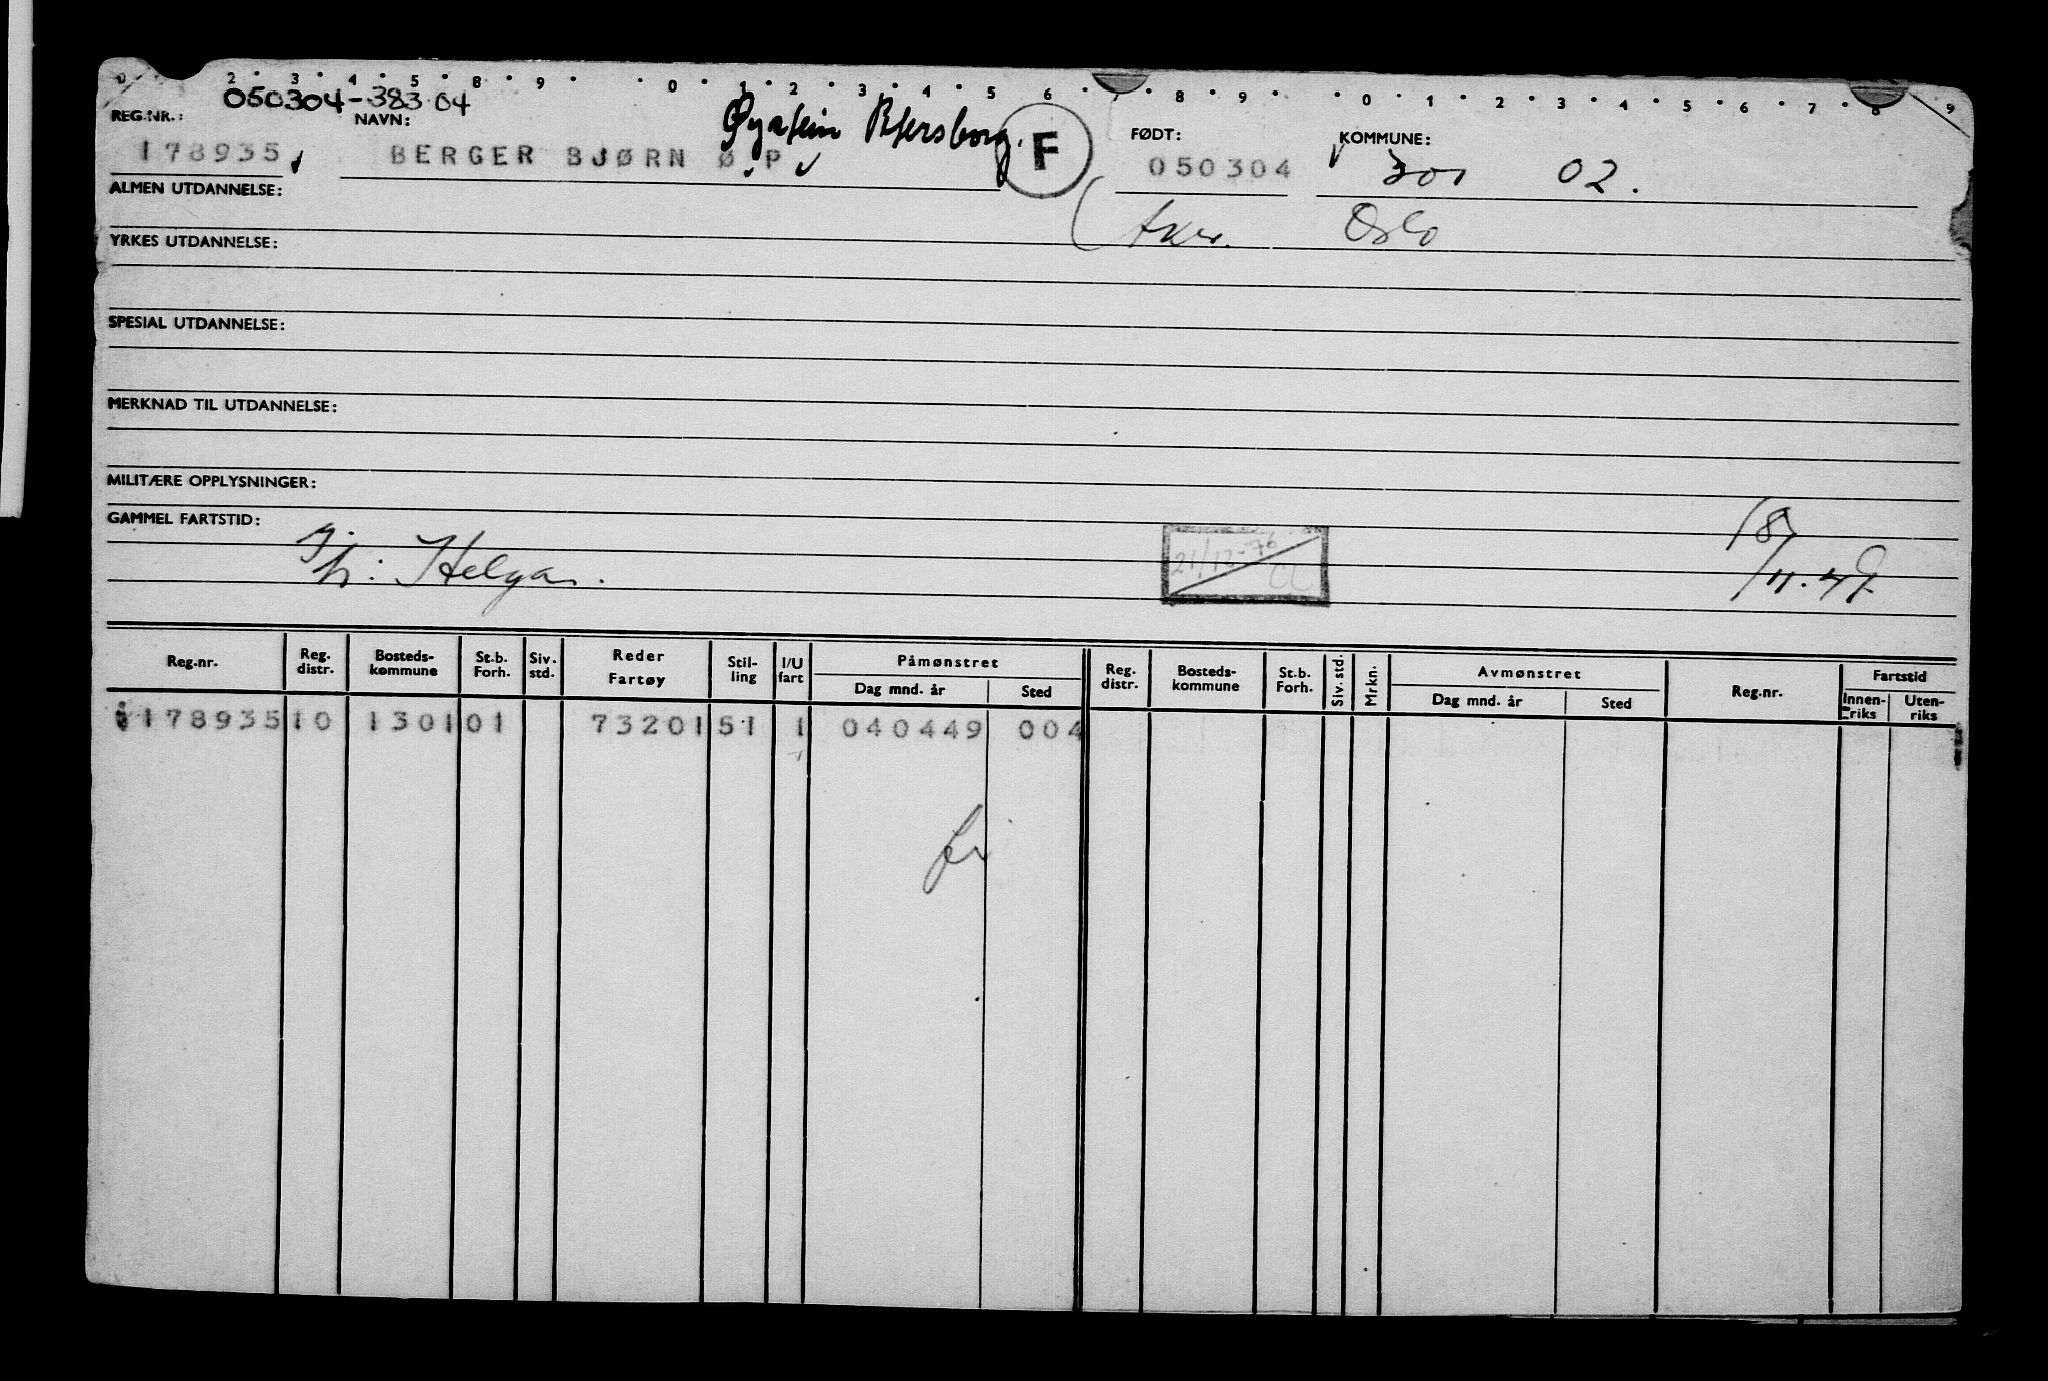 0 2 3 4 5 8 9 0 1 2 3 4 5 6 7 8 9 0 1 2 3 4 5 6 7 8 9
050304-38304
REG.NR.: NAVN: Øystein FØDT: KOMMUNE:
178935 BERGER BJØRN Ø P F 050304 301 02.
ALMEN UTDANNELSE:
Aker. Oslo
YRKES UTDANNELSE:
SPESIAL UTDANNELSE:
MERKNAD TIL UTDANNELSE:
MILITÆRE OPPLYSNINGER:
GAMMEL FARTSTID:
21/12-76 CL
Reg.nr. Reg. distr. Bosteds-kømmune St.b. Forh. Siv. std. Reder Fartøy Stil-ling I/U fart Påmønstret Dag mnd. år Sted Reg. distr. Bosteds-kommune St.b. Forh. Siv. std. Mrkn. Avmønstret Dag mnd. år Sted Reg.nr. Fartstid Innen-riks Uten-riks
178935 10 1301 01 73201 51 1 040449 004